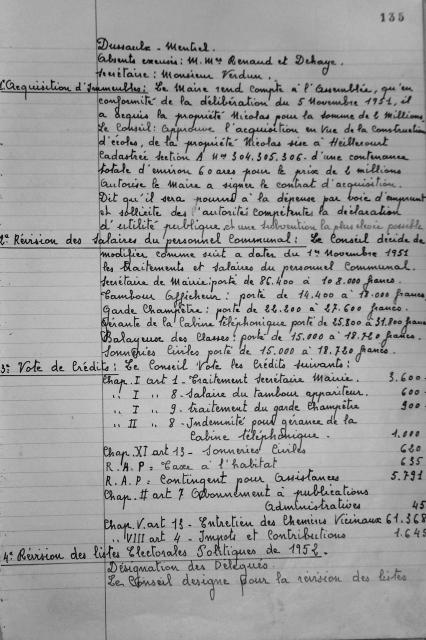 135
Dussaulx - Mentrel.
Absents excusés: M.Mrs Renaud et Dehaye.
Secrétaire: Monsieur Verdun.
1° Acquisition d'Immeubles: Le Maire rend compte à l'Assemblée, qu'en
conformité de la délibération du 5 Novembre 1951, il
a acquis la propriété Nicolas pour la somme de 2 millions.
Le Conseil: Approuve l'acquisition en vue de la construction
d'écoles, de la propriété Nicolas sise à Heillecourt
Cadastrée section A Nos 304.305.306. d'une contenance
totale d'environ 60 ares pour le prix de 2 millions
Autorise le Maire à signer le contrat d'acquisition.
Dit qu'il sera pourvu à la dépense par voie d'emprunt
et sollicite des autorités compétentes la déclaration
d'utilité publique, et une subvention la plus élevée possible
2° Révision des Salaires du personnel Communal: Le Conseil décide de
modifier comme suit à dater du 1er Novembre 1951
les traitements et salaires du personnel Communal.
Secrétaire de Mairie: porté de 86.400 à 108.000 francs.
Tambour Afficheur: porté de 14.400 à 18.000 francs
Garde Champêtre: porté de 22.200 à 27.600 francs.
Gérante de la Cabine Téléphonique porté de 25.800 à 31.800 francs
Balayeuse des Classes: porté de 15.000 à 18.720 francs.
Sonneries Civiles porté de 15.000 à 18.720 francs.
3° Vote de Crédits: Le Conseil Vote les Crédits suivants:
Chap. I art 1 - Traitement Secrétaire Mairie. 3.600
" I " 8 - Salaire du tambour appariteur. 600
" I " 9 - traitement du garde Champêtre 900
" II " 8 - Indemnité pour gérance de la
Cabine téléphonique. 1.000
Chap. XI art 13 - Sonneries Civiles 620
R.A.P = Taxe à l'habitat 635
R.A.P = Contingent pour Assistances 5.791
Chap. II art 7 Abonnement à publications
Administratives 45
Chap. V. art 13 - Entretien des Chemins Vicinaux 61.368
" VIII art 4 - Impôts et Contributions 1.645
4° Révision des listes Electorales Politiques de 1952.
Désignation des Délégués
Le Conseil désigne pour la révision des listes